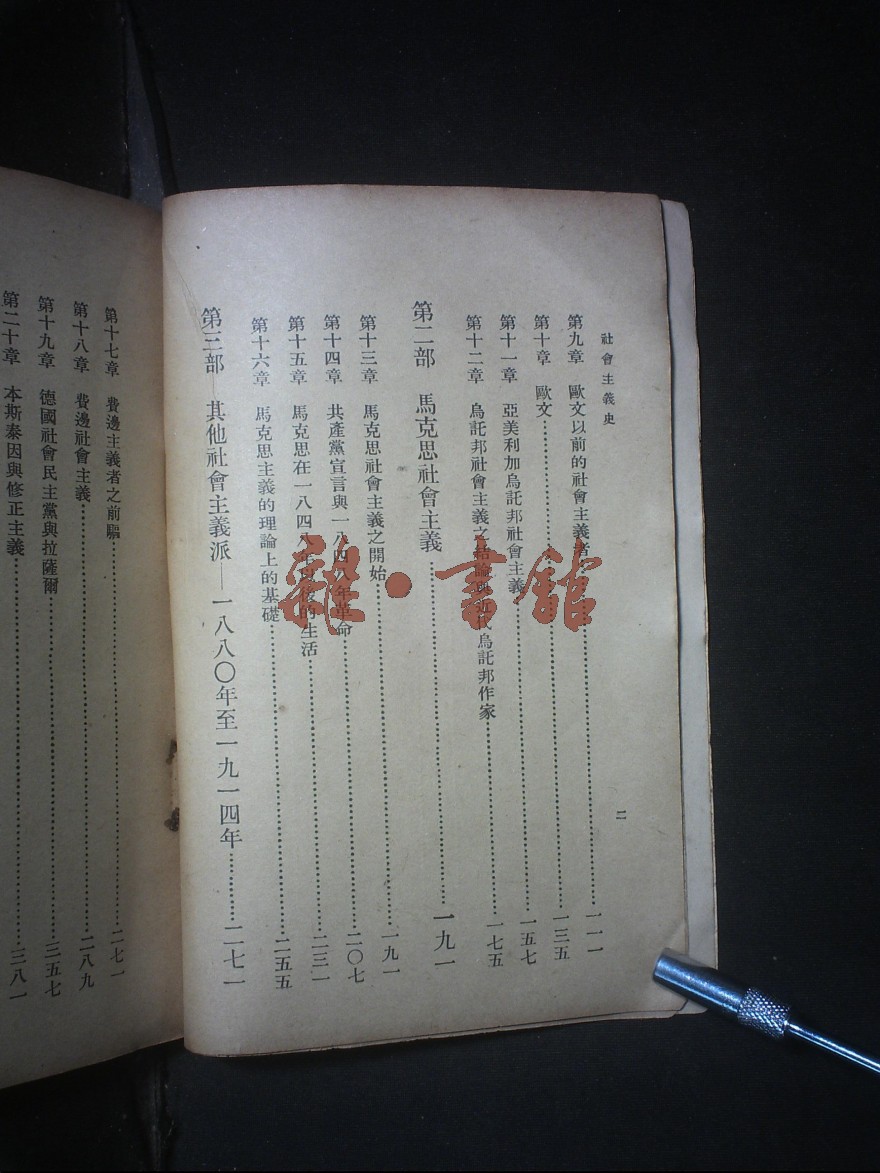 社會主義史
二
第九章 歐文以前的社會主義者……一一一
第十章 歐文……一三五
第十一章 亞美利加烏託邦社會主義……一五七
第十二章 烏託邦社會主義之結論與近代烏託邦作家……一七五
第二部 馬克思社會主義……一九一
第十三章 馬克思社會主義之開始……一九一
第十四章 共產黨宣言與一八四八年革命……二〇七
第十五章 馬克思在一八四八年以後的生活……二三一
第十六章 馬克思主義的理論上的基礎……二五五
第三部—其他社會主義派—一八八〇年至一九一四年……二七一
第十七章 費邊主義者之前驅……二七一
第十八章 費邊社會主義……二八九
第十九章 德國社會民主黨與拉薩爾……三五七
第二十章 本斯泰因與修正主義……三八一
雜·書館